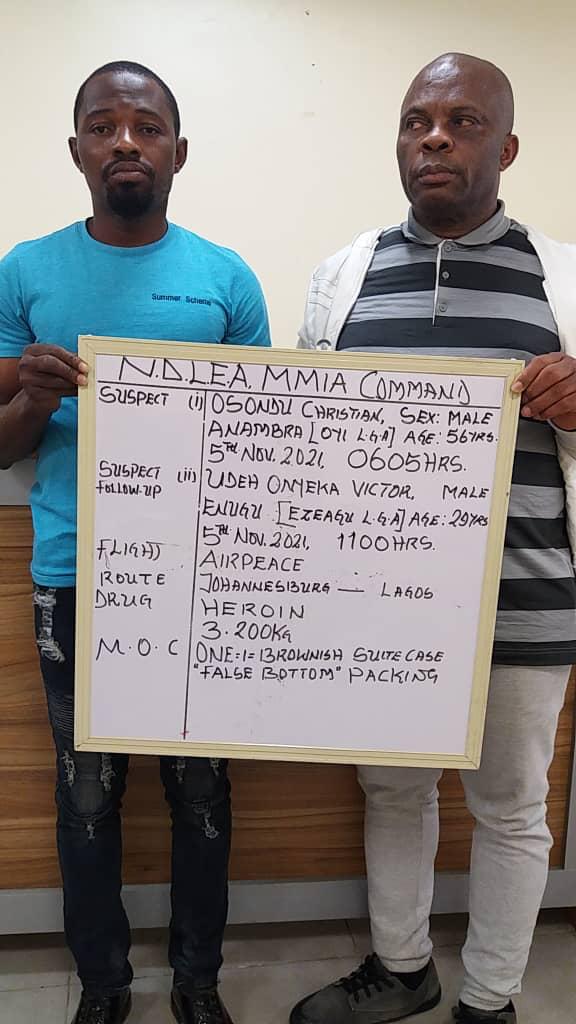 Summer Scheme
N.D.L.E.A. MMIA COMMAND
SUSPECT (i) OSONDU CHRISTIAN, SEX: MALE
ANAMBRA [OYI L.G.A] AGE: 56YRS.
5TH NOV. 2021, 0605HRS.
SUSPECT (ii) UDEH ONYEKA VICTOR, MALE
FOLLOW-UP ENUGU [EZEAGU L.G.A] AGE: 29YRS
5TH NOV. 2021, 1100HRS.
FLIGHT AIRPEACE
ROUTE JOHANNESBURG — LAGOS
DRUG HEROIN
3.200KG
M.O.C ONE=1= BROWNISH SUITE CASE
"FALSE BOTTOM" PACKING